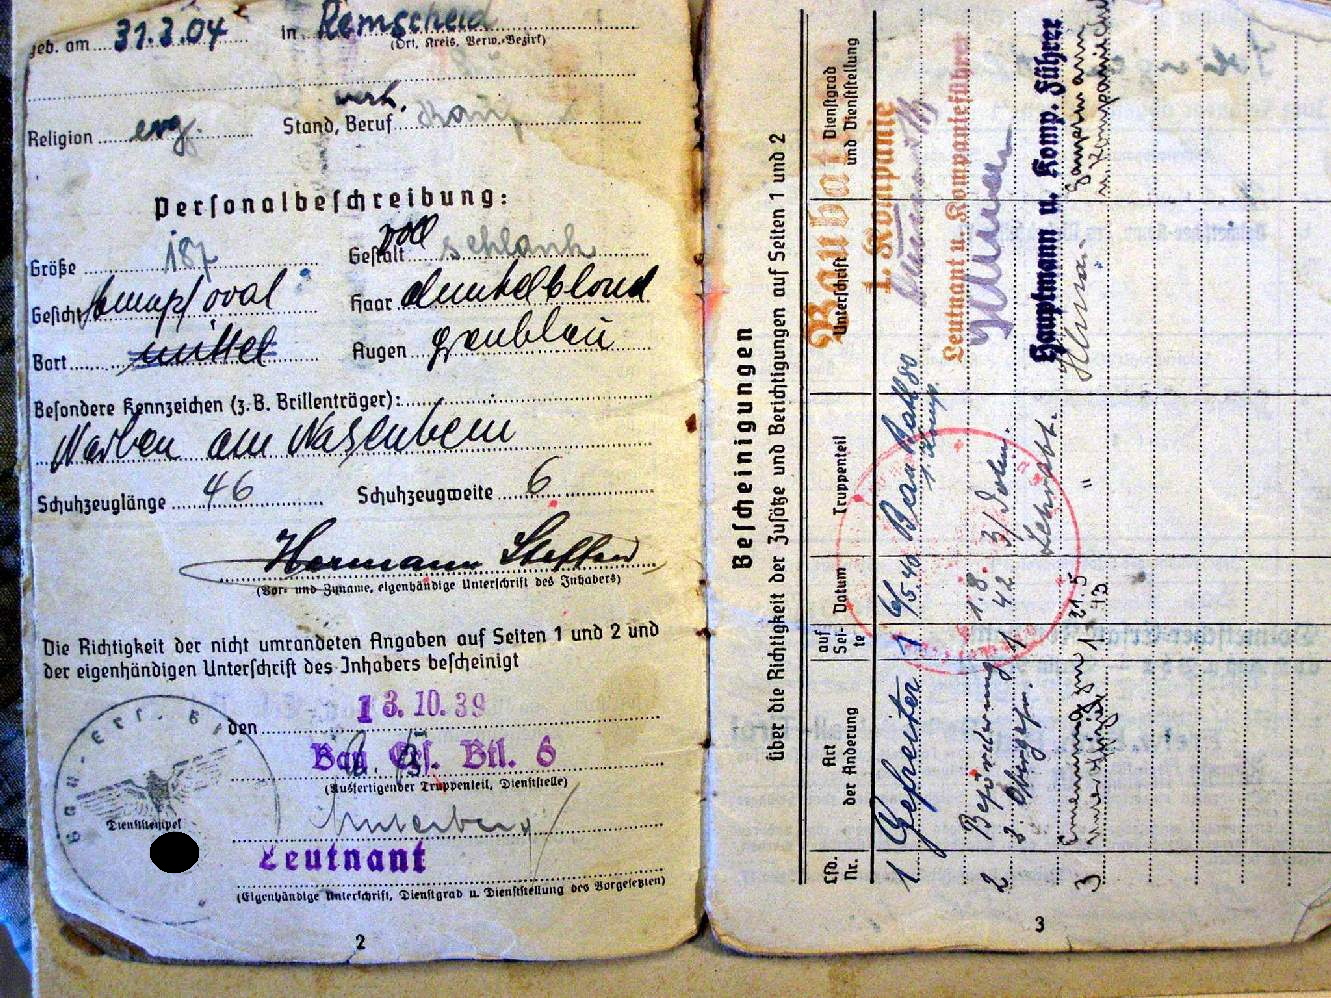 geb. am 31.3.04 in Remscheid
(Ort, Kreis, Verw.-Bezirk)
verh.
Religion evg. Stand, Beruf
Personalbeschreibung:
Größe 187 Gestalt schlank
Gesicht oval Haar dunkelblond
Bart mittel Augen graublau
Besondere Kennzeichen (z.B. Brillenträger):
Narben am Nasenbein
Schuhzeuglänge 46 Schuhzeugweite 6
Hermann Steffen
(Vor- und Zuname, eigenhändige Unterschrift des Inhabers)
Die Richtigkeit der nicht umrandeten Angaben auf Seiten 1 und 2 und
der eigenhändigen Unterschrift des Inhabers bescheinigt
den 13.10.39
Bau Ers. Btl. 6
(Ausfertigender Truppenteil, Dienststelle)
Dienststempel
Leutnant
(Eigenhändige Unterschrift, Dienstgrad u. Dienststellung des Vorgesetzten)
2
Bescheinigungen
über die Richtigkeit der Zusätze und Berichtigungen auf Seiten 1 und 2
Lfd. Nr. Art der Änderung auf Seite Datum Truppenteil Unterschrift Dienstgrad und Dienststellung
1 Gefreiter 1 6/5.40
1. Kompanie
2 Beförderung 1 1.8.42
z. Obergefr.
Leutnant u. Kompanieführer
3 1 21.5.43 "
Hauptmann u. Komp. Führer
Hauptmann
3